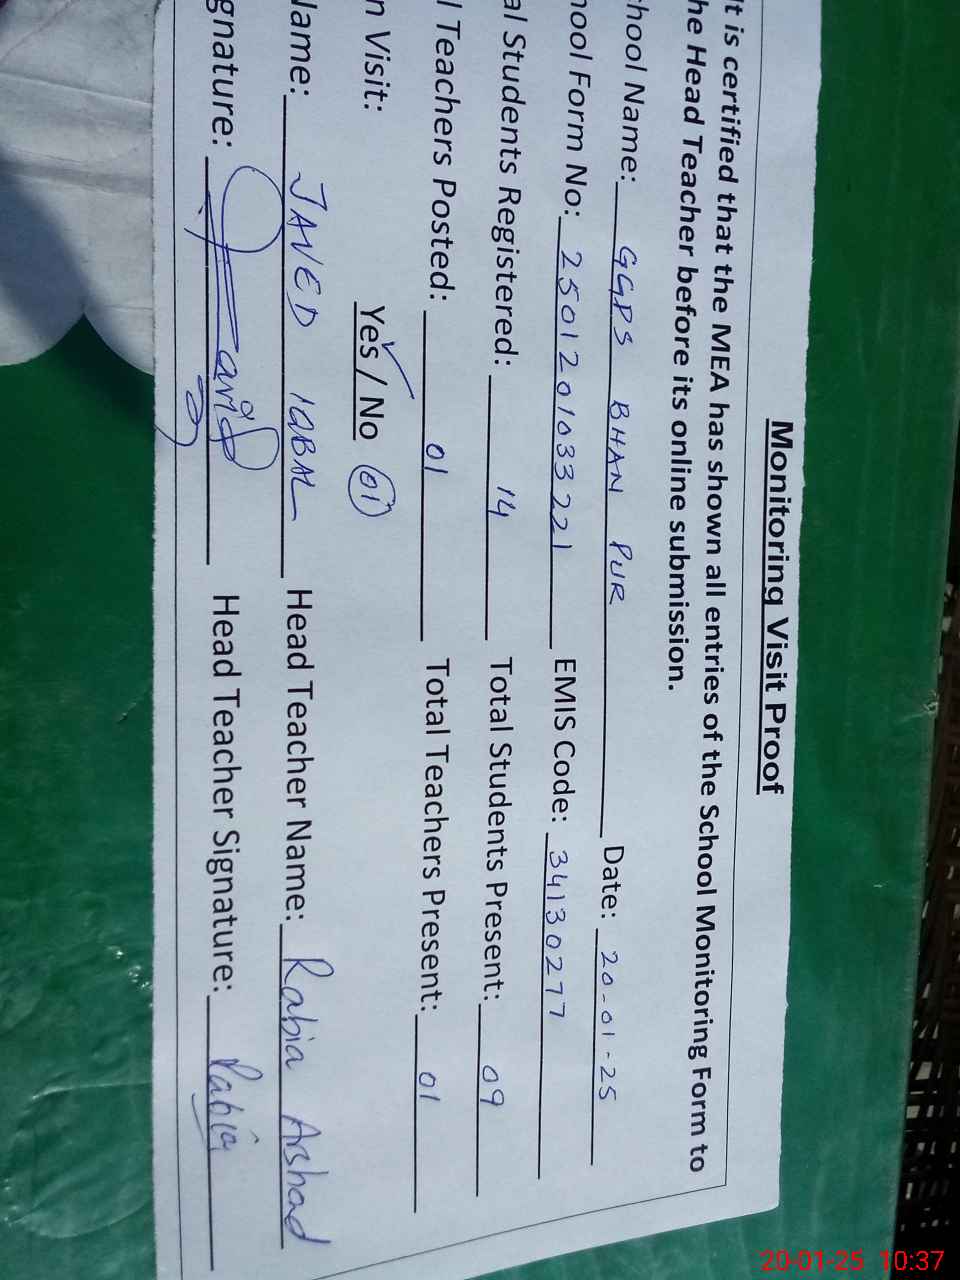 Monitoring Visit Proof
It is certified that the MEA has shown all entries of the School Monitoring Form to
he Head Teacher before its online submission.
hool Name: GGPS BHAN PUR Date: 20-01-25
hool Form No: 2501201033221 EMIS Code: 34130277
al Students Registered: 14 Total Students Present: 09
l Teachers Posted: 01 Total Teachers Present: 01
n Visit: Yes / No 01
Name: JAVED IQBAL Head Teacher Name: Rabia Arshad
gnature: Javid Head Teacher Signature: Rabia
20-01-25 10:37